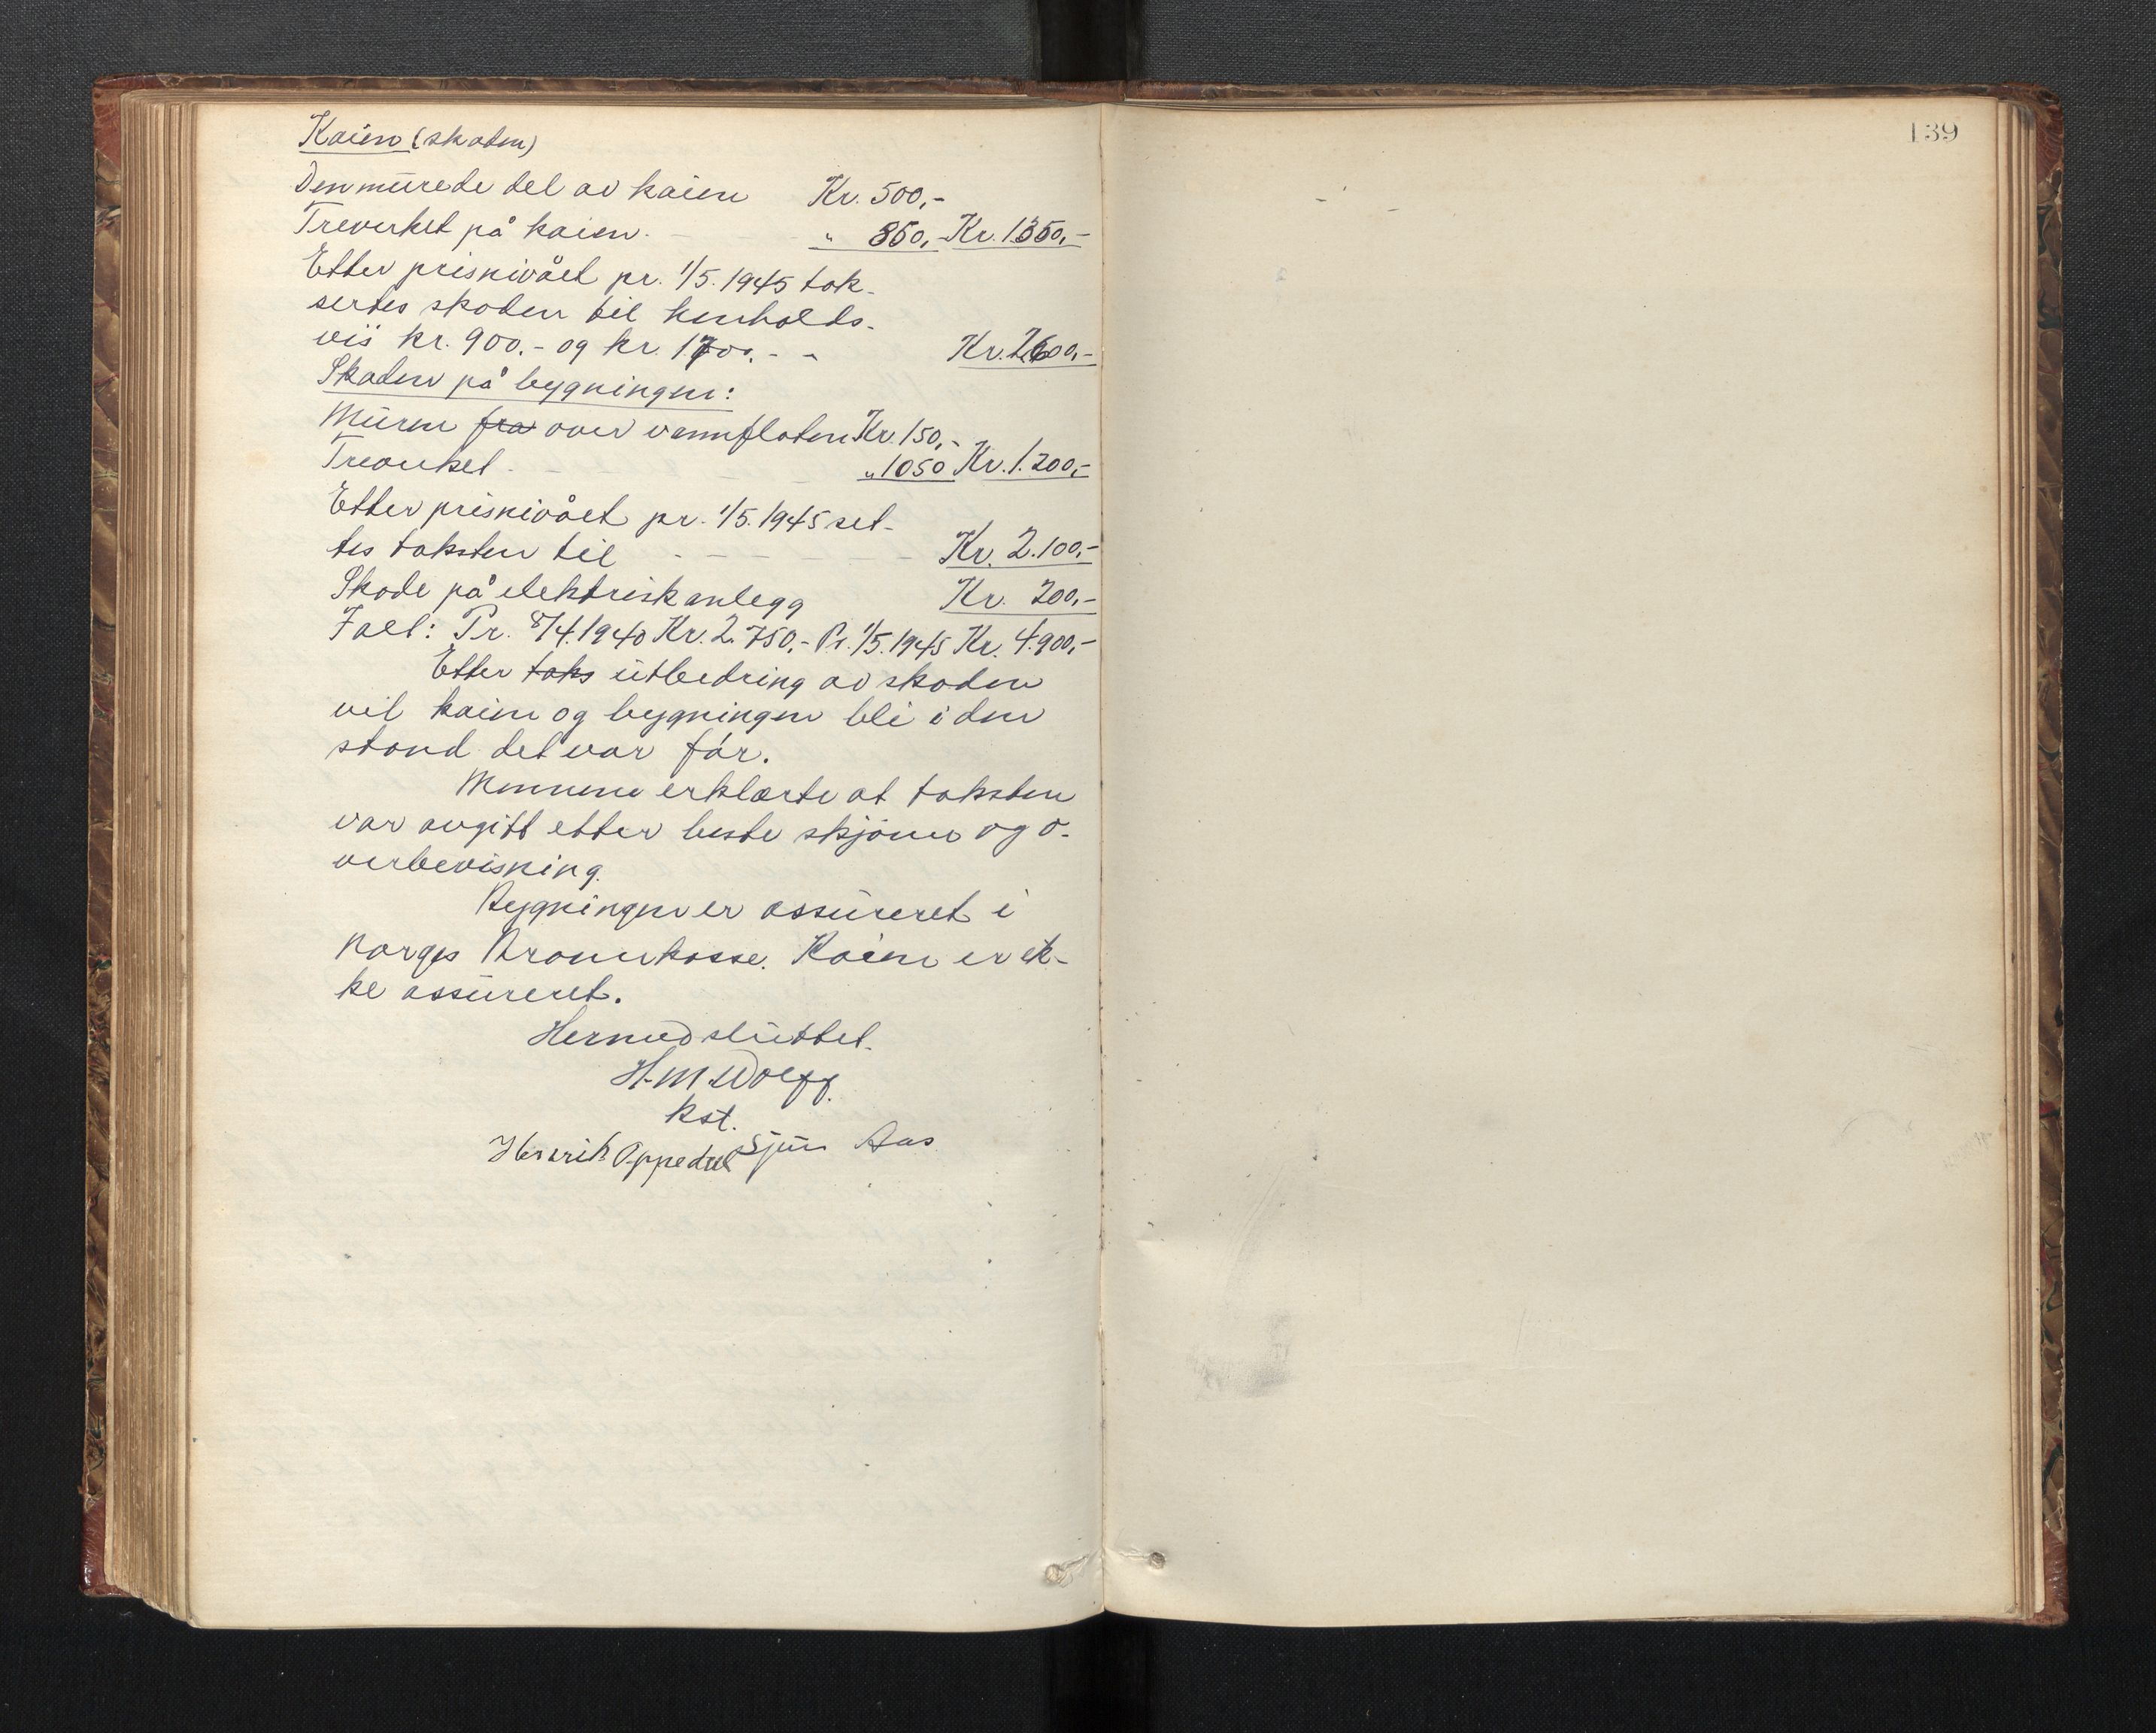 Kaien (skaden)
Den murede del av kaien Kr. 500,-
Treverket på kaien. - " 850,- Kr. 1350,-
Etter prisnivået pr. 1/5. 1945 tak-
sertes skaden til henholds-
vis kr. 900.- og kr. 1700.- - Kr. 2600,-
Skaden på bygningen:
Muren fra over vannflaten Kr. 150,-
Treverket - - - " 1050 Kr. 1.200,-
Etter prisnivået pr. 1/5. 1945 set-
tes taksten til - - - - - Kr. 2.100,-
Skade på elektrisk anlegg Kr. 200,-
I alt: Pr. 8/4. 1940 Kr. 2.750,- Pr. 1/5. 1945 Kr. 4.900,-
Etter taks utbedring av skaden
vil kaien og bygningen bli i den
stand det var før.
Mennene erklærte at taksten
var avgitt etter beste skjønn og o-
verbevisning.
Bygningen er assureret i
Norges Brannkasse. Kaien er ik-
ke assureret.
Hermed sluttet.
H. M. Wolff.
kst.
Henrik Oppedal Sjur Aas
139